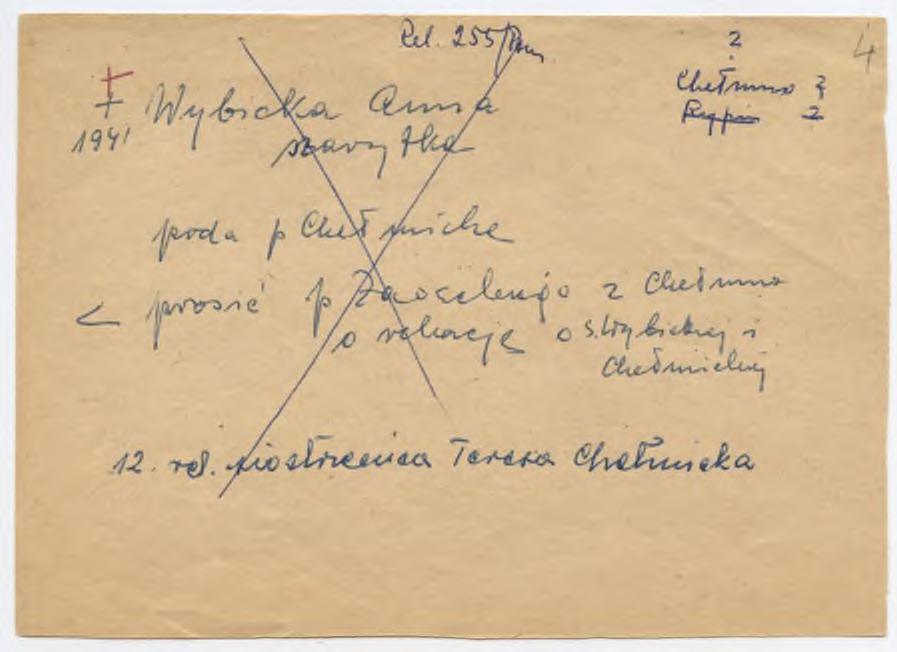 Rel. 255/Pom
2
4
Chełmno ?
Rypin 2
+
+ Wybicka Anna
1941
szarytka
poda p Chełmicka
< prosić p z Chełmna
o relację o s. Wybickiej i
Chełmickiej
12. rel. siostrzenica Teresa Chełmicka